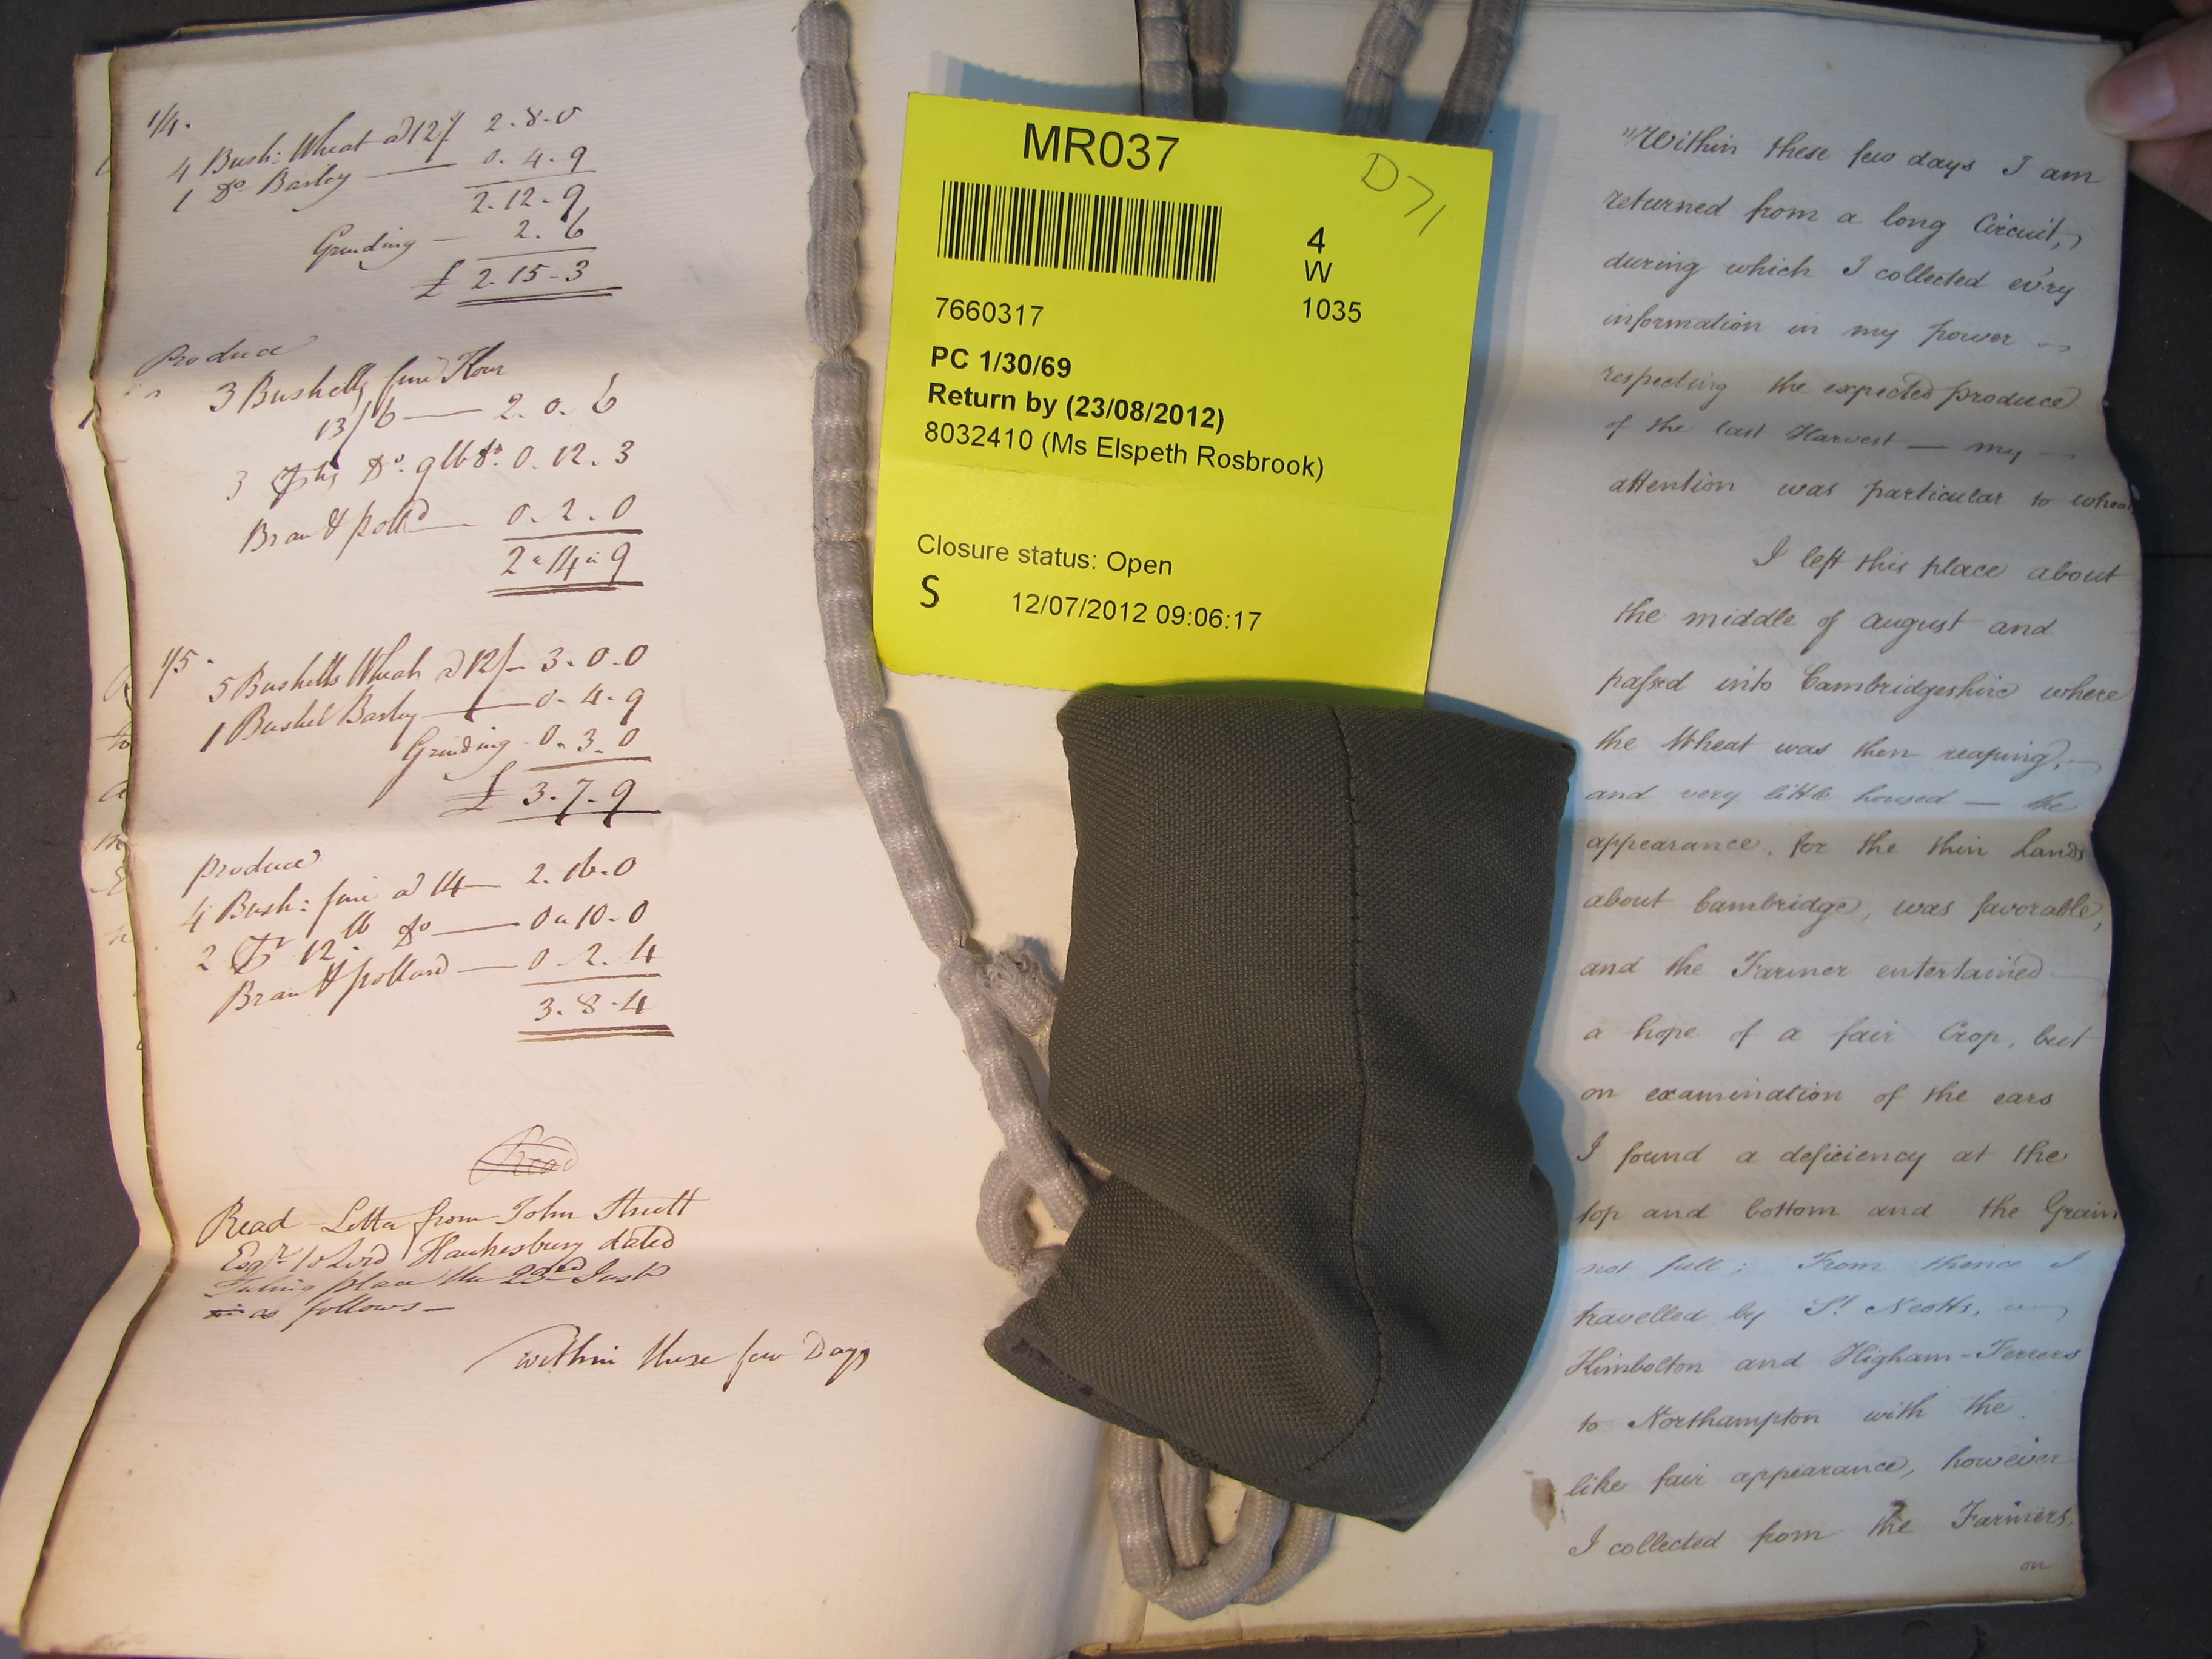 1/4.
4 Bush: Wheat a 12/ 2-8-0
1 Do Barley — 0.4.9
2.12.9
Grinding — 2.6
£ 2.15-3
Produce
3 Bushells fine Flour
13/6 — 2.0.6
3 Do. 9 lb 8 0.12.3
Bran & polld — 0.2.0
2"14"9
1/5.
5 Bushells Wheat a 12/- 3-0-0
1 Bushel Barley — 0-4-9
Grinding 0.3.0
£ 3-7-9
Produce
4 Bush: fine a 14 — 2.16.0
2 12 lb Do — 0"10-0
Bran & pollard — 0.2.4
3.8.4
Read
Read Letter from John Strutt
Esqr. to Lord Hawkesbury dated
place the 23rd Inst
as follows —
within these few Days
MR037
D71
4
W
1035
7660317
PC 1/30/69
Return by (23/08/2012)
8032410 (Ms Elspeth Rosbrook)
Closure status: Open
S 12/07/2012 09:06:17
"Within these few days I am
returned from a long Circuit,
during which I collected ev'ry
information in my power
respecting the expected produce
of the last Harvest — my —
attention was particular to wheat
I left this place about
the middle of august and
passed into Cambridgeshire where
the Wheat was then reaping,
and very little housed — the
appearance, for the thin Lands
about Cambridge, was favorable,
and the Farmer entertained
a hope of a fair Crop, but
on examination of the ears
I found a deficiency at the
top and bottom and the Grain
not full; From thence I
travelled by St. Neotts,
Kimbolton and Higham-Ferrers
to Northampton with the
like fair appearance, however
I collected from the Farmers,
on